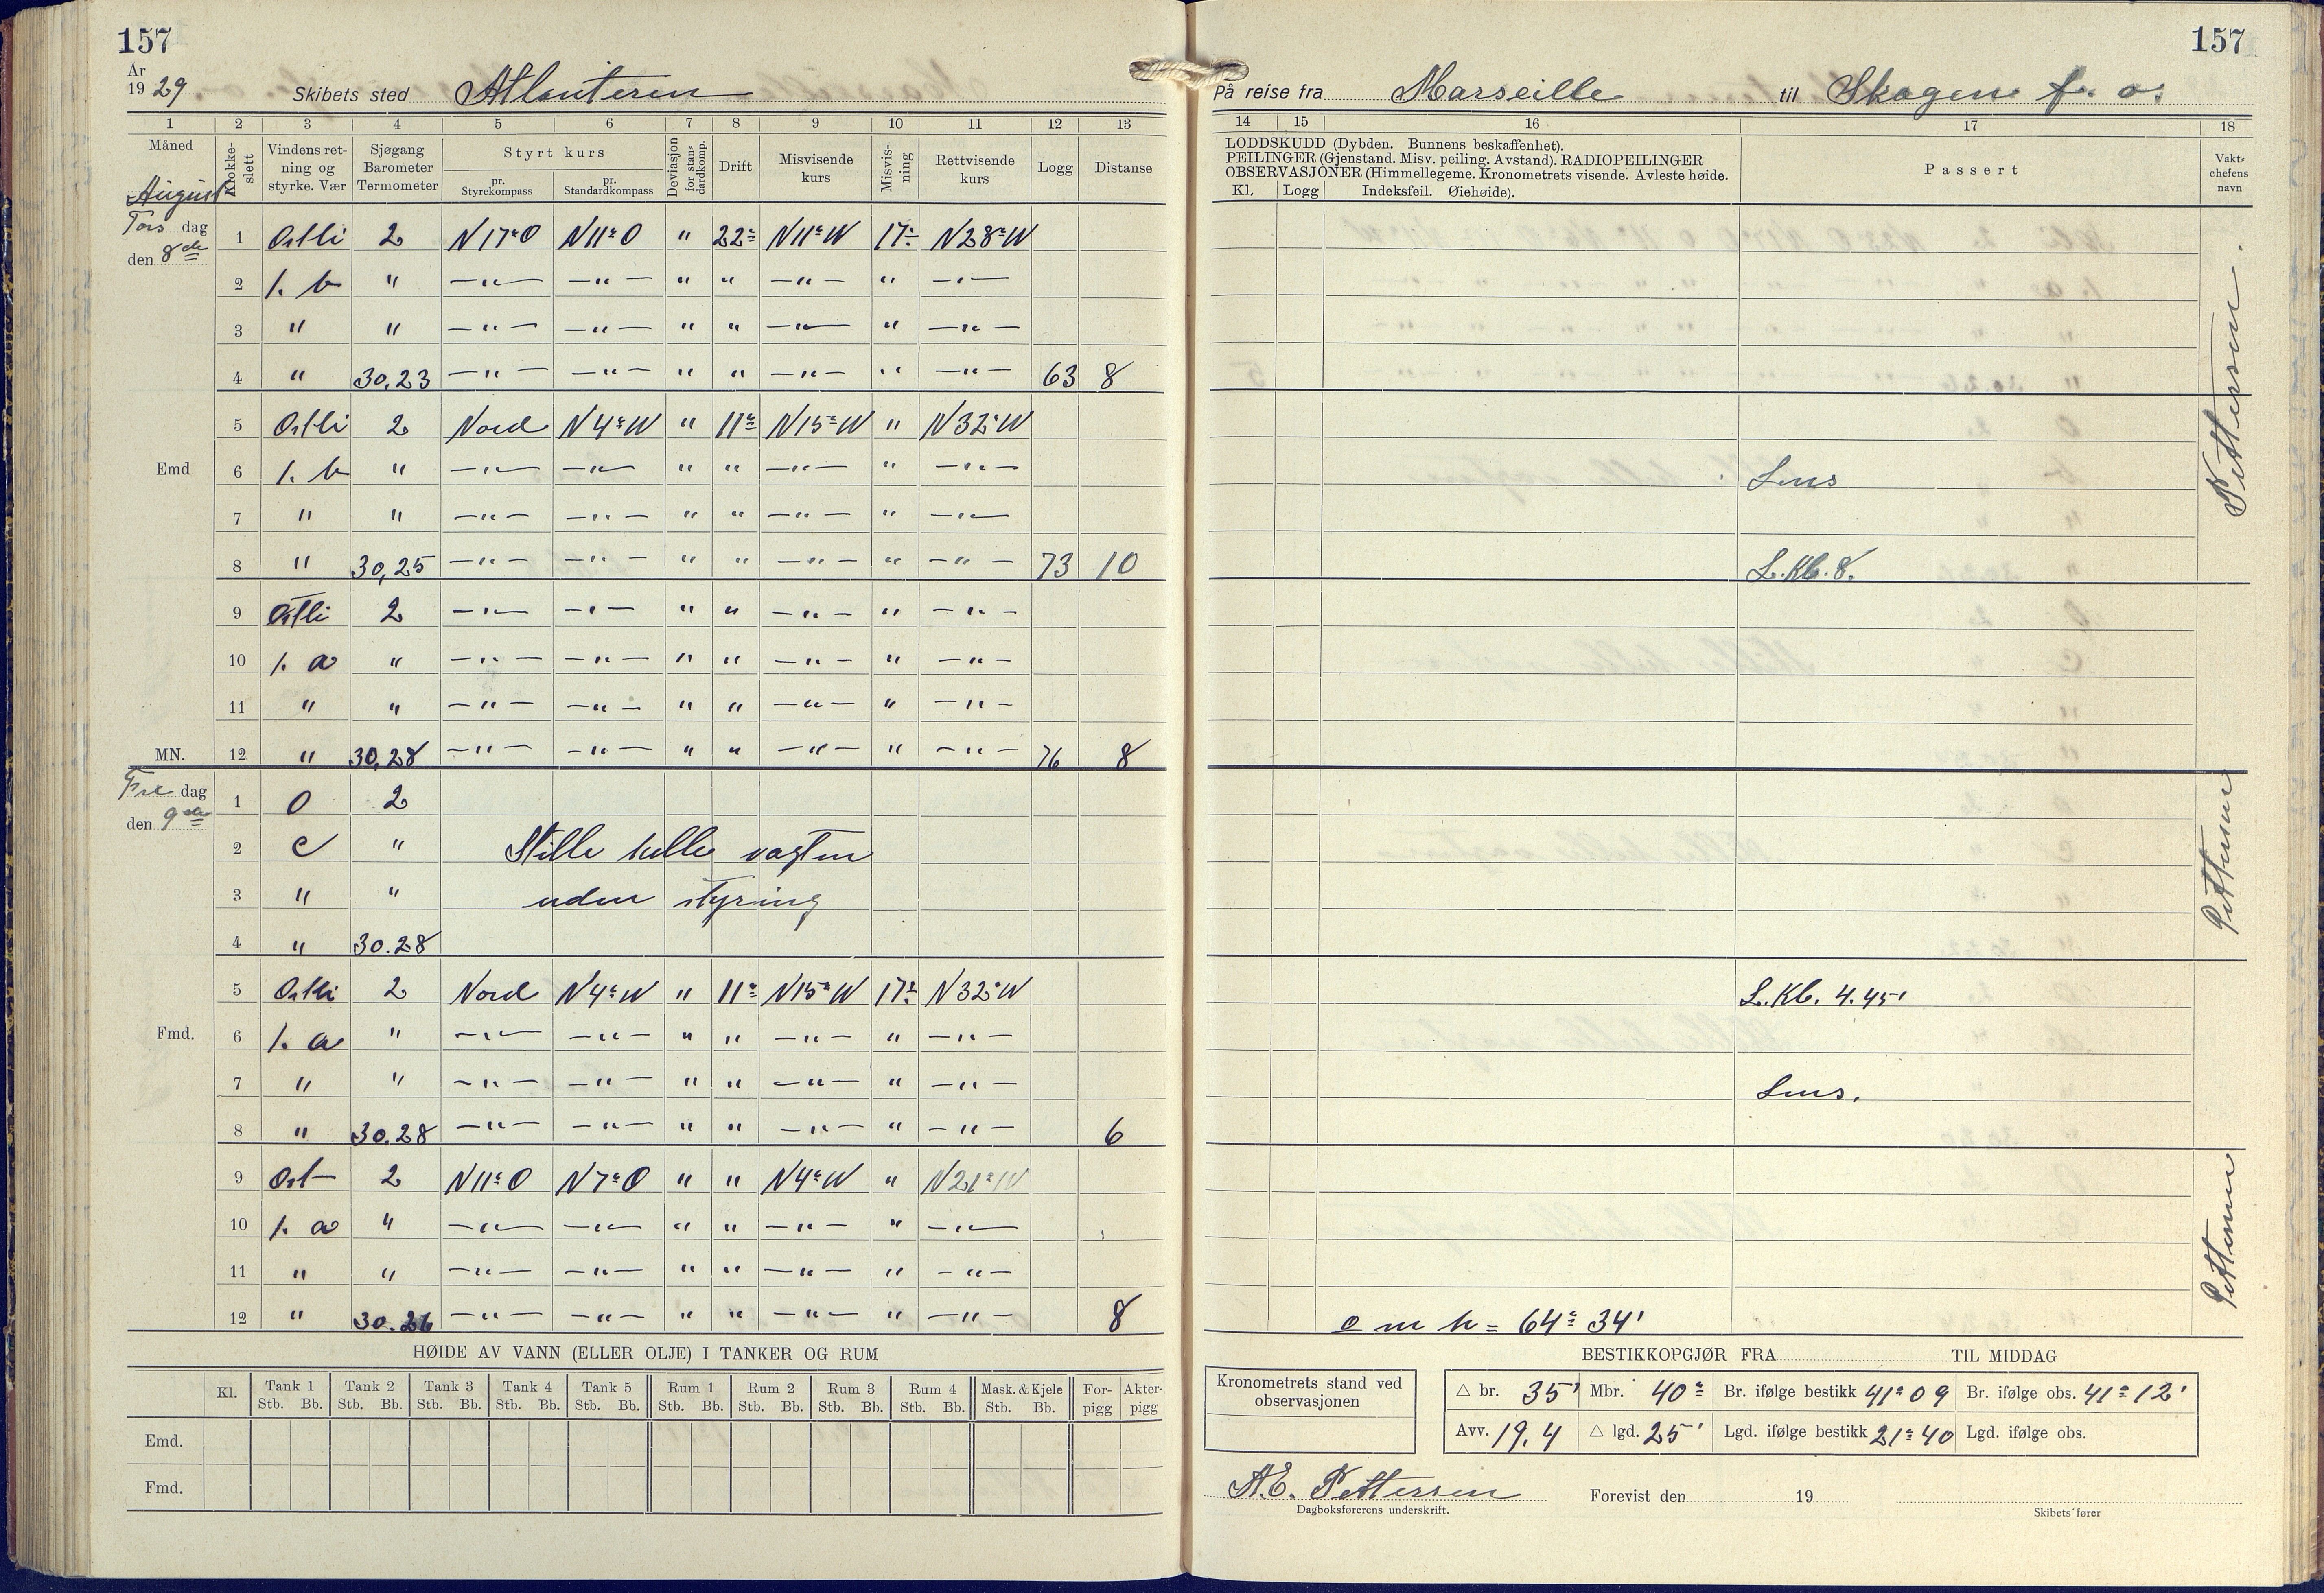 157
År
19 29 Skibets sted Atlanteren
1 2 3 4 5 6 7 8 9 10 11 12 13
Måned Klokkeslett Vindens retning og styrke. Vær Sjøgang Barometer Termometer Styrt kurs pr. Styrekompass pr. Standardkompass Devíasjon for standardkomp. Drift Misvisende kurs Misvisning Rettvisende kurs Logg Distanse
August
Tors dag
den 8de
1 Østli 2 N 17° O N 11° O " 22° N 11° W 17° N 28° W
2 1. b " —"— —"— " " —"— " —"—
3 " " —"— —"— " " —"— " —"—
4 " 30,23 —"— —"— " " —"— " —"— 63 8
5 Østli 2 Nord N 4° W " 11° N 15° W " N 32° W
Emd 6 1. b " —"— —"— " " —"— " —"—
7 " " —"— —"— " " —"— " —"—
8 " 30,25 —"— —"— " " —"— " —"— 73 10
9 Østli 2 —"— —"— " " —"— " —"—
10 1. a " —"— —"— " " —"— " —"—
11 " " —"— —"— " " —"— " —"—
MN. 12 " 30,28 —"— —"— " " —"— " —"— 76 8
Fre dag
den 9de
1 0 2
2 c " Stille hele vagten
3 " " uden styring
4 " 30.28
5 Østli 2 Nord N 4° W " 11° N 15° W 17° N 32° W
Fmd. 6 1. a " —"— —"— " " —"— " —"—
7 " " —"— —"— " " —"— " —"—
8 " 30.28 —"— —"— " " —"— " —"— 6
9 Øst 2 N 11° O N 7° O " " N 4° W " N 21° W
10 1. a " —"— —"— " " —"— " —"—
11 " " —"— —"— " " —"— " —"—
12 " 30.26 —"— —"— " " —"— " —"— 8
HØIDE AV VANN (ELLER OLJE) I TANKER OG RUM
Kl. Tank 1 Tank 2 Tank 3 Tank 4 Tank 5 Rum 1 Rum 2 Rum 3 Rum 4 Mask. & Kjele For-pigg Akter-pigg
Stb. Bb. Stb. Bb. Stb. Bb. Stb. Bb. Stb. Bb. Stb. Bb. Stb. Bb. Stb. Bb. Stb. Bb. Stb. Bb.
Emd.
Fmd.
157
På reise fra Marseille til Skagen f. o.
14 15 16 17 18
LODDSKUDD (Dybden. Bunnens beskaffenhet).
PEILINGER (Gjenstand. Misv. peiling. Avstand). RADIOPEILINGER
OBSERVASJONER (Himmellegeme. Kronometrets visende. Avleste høide.
Kl. Logg Indeksfeil. Øiehøide).
Passert
Vaktchefens navn
Pettersen
Lens
L. Kl. 8.
Pettersen
L. Kl. 4.45'
Lens.
Pettersen
o m h = 64° 34'
BESTIKKOPGJØR FRA TIL MIDDAG
Kronometrets stand ved observasjonen
△ br. 35' Mbr. 40° Br. ifølge bestikk 41° 09 Br. ifølge obs. 41° 12'
Avv. 19,4 △ lgd. 25' Lgd. ifølge bestikk 21° 40 Lgd. ifølge obs.
A.E. Pettersen Forevist den 19
Dagboksførerens underskrift. Skibets fører